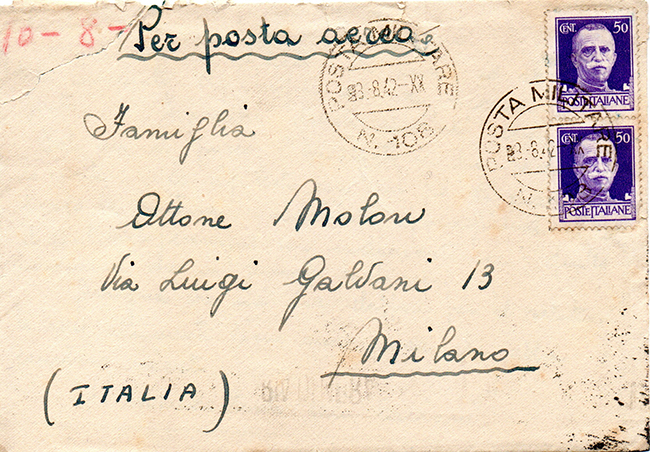 10-8-
Per posta aerea
POSTA MILITARE
3.8.42-XX
N. 106
CENT. 50
POSTE ITALIANE
POSTA MILITARE
3.8.42
N.
CENT. 50
POSTE ITALIANE
Famiglia
Ottone
Via Luigi Galvani 13
Milano
(ITALIA)